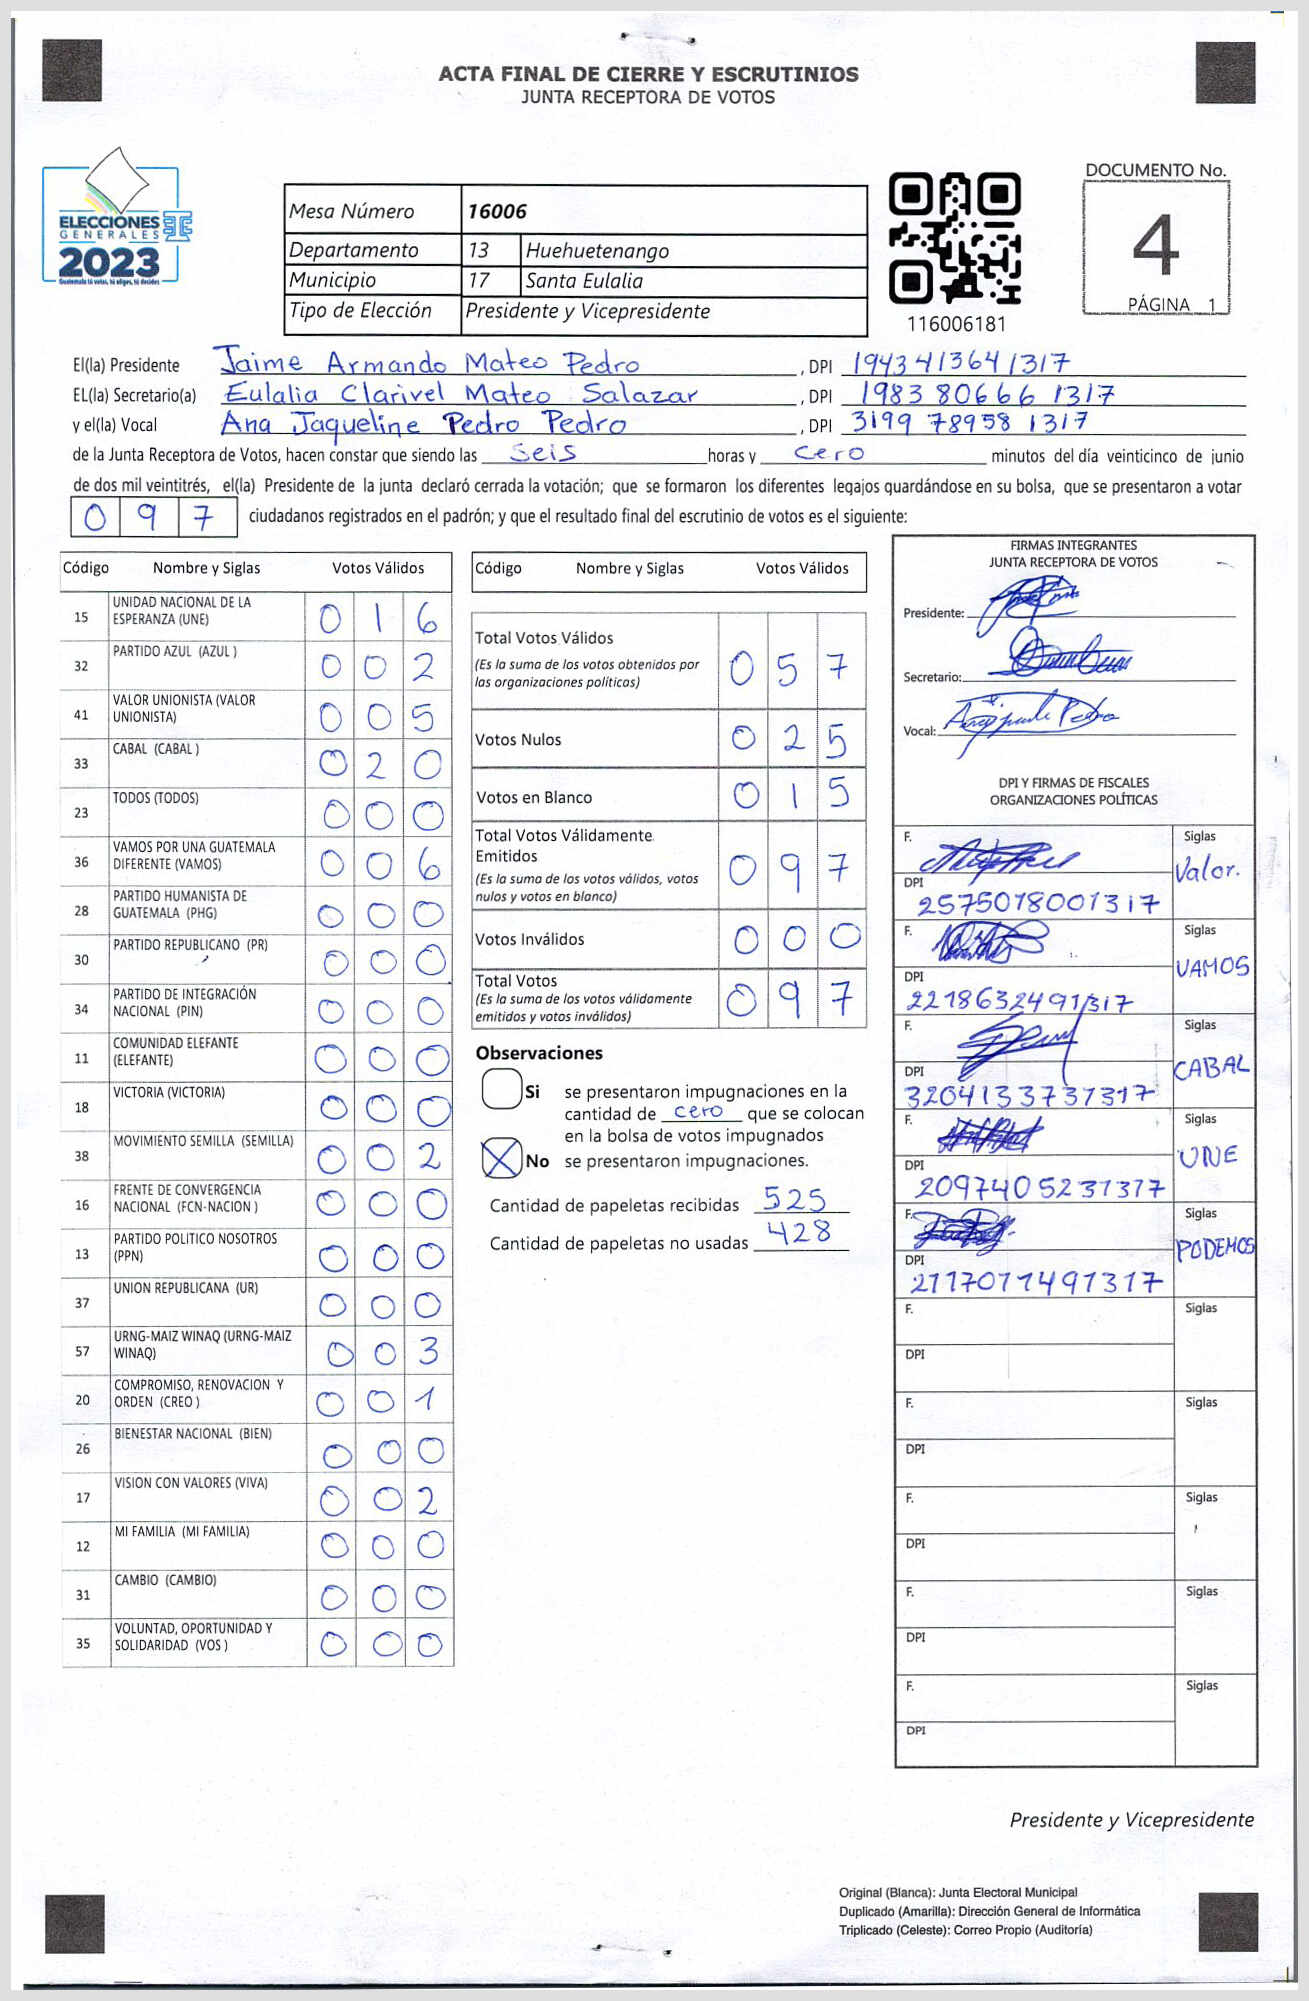 ACTA FINAL DE CIERRE Y ESCRUTINIOS
JUNTA RECEPTORA DE VOTOS
ELECCIONES
GENERALES
2023
Guatemala tú votas, tú eliges, tú decides
Mesa Número 16006
Departamento 13 Huehuetenango
Municipio 17 Santa Eulalia
Tipo de Elección Presidente y Vicepresidente
116006181
DOCUMENTO No.
4
PÁGINA 1
El(la) Presidente Jaime Armando Mateo Pedro , DPI 1943413641317
EL(la) Secretario(a) Eulalia Clarivel Mateo Salazar , DPI 1983 80666 1317
y el(la) Vocal Ana Jaqueline Pedro Pedro , DPI 3199 78958 1317
de la Junta Receptora de Votos, hacen constar que siendo las seis horas y cero minutos del día veinticinco de junio
de dos mil veintitrés, el(la) Presidente de la junta declaró cerrada la votación; que se formaron los diferentes legajos guardándose en su bolsa, que se presentaron a votar
0 9 7 ciudadanos registrados en el padrón; y que el resultado final del escrutinio de votos es el siguiente:
Código Nombre y Siglas Votos Válidos
15 UNIDAD NACIONAL DE LA ESPERANZA (UNE) 0 1 6
32 PARTIDO AZUL (AZUL ) 0 0 2
41 VALOR UNIONISTA (VALOR UNIONISTA) 0 0 5
33 CABAL (CABAL ) 0 2 0
23 TODOS (TODOS) 0 0 0
36 VAMOS POR UNA GUATEMALA DIFERENTE (VAMOS) 0 0 6
28 PARTIDO HUMANISTA DE GUATEMALA (PHG) 0 0 0
30 PARTIDO REPUBLICANO (PR) 0 0 0
34 PARTIDO DE INTEGRACIÓN NACIONAL (PIN) 0 0 0
11 COMUNIDAD ELEFANTE (ELEFANTE) 0 0 0
18 VICTORIA (VICTORIA) 0 0 0
38 MOVIMIENTO SEMILLA (SEMILLA) 0 0 2
16 FRENTE DE CONVERGENCIA NACIONAL (FCN-NACION ) 0 0 0
13 PARTIDO POLITICO NOSOTROS (PPN) 0 0 0
37 UNION REPUBLICANA (UR) 0 0 0
57 URNG-MAIZ WINAQ (URNG-MAIZ WINAQ) 0 0 3
20 COMPROMISO, RENOVACION Y ORDEN (CREO ) 0 0 1
26 BIENESTAR NACIONAL (BIEN) 0 0 0
17 VISION CON VALORES (VIVA) 0 0 2
12 MI FAMILIA (MI FAMILIA) 0 0 0
31 CAMBIO (CAMBIO) 0 0 0
35 VOLUNTAD, OPORTUNIDAD Y SOLIDARIDAD (VOS ) 0 0 0
Código Nombre y Siglas Votos Válidos
Total Votos Válidos
(Es la suma de los votos obtenidos por
las organizaciones políticas) 0 5 7
Votos Nulos 0 2 5
Votos en Blanco 0 1 5
Total Votos Válidamente
Emitidos
(Es la suma de los votos válidos, votos
nulos y votos en blanco) 0 9 7
Votos Inválidos 0 0 0
Total Votos
(Es la suma de los votos válidamente
emitidos y votos inválidos) 0 9 7
Observaciones
Si se presentaron impugnaciones en la
cantidad de cero que se colocan
en la bolsa de votos impugnados
No se presentaron impugnaciones.
Cantidad de papeletas recibidas 525
Cantidad de papeletas no usadas 428
FIRMAS INTEGRANTES
JUNTA RECEPTORA DE VOTOS
Presidente:
Secretario:
Vocal:
DPI Y FIRMAS DE FISCALES
ORGANIZACIONES POLÍTICAS
F. Siglas
Valor.
DPI
2575018001317
F. Siglas
VAMOS
DPI
2218632491317
F. Siglas
CABAL
DPI
3204133737317
F. Siglas
UNE
DPI
2097405231317
F. Siglas
PODEMOS
DPI
2117011491317
F. Siglas
DPI
F. Siglas
DPI
F. Siglas
DPI
F. Siglas
DPI
F. Siglas
DPI
Presidente y Vicepresidente
Original (Blanca): Junta Electoral Municipal
Duplicado (Amarilla): Dirección General de Informática
Triplicado (Celeste): Correo Propio (Auditoría)